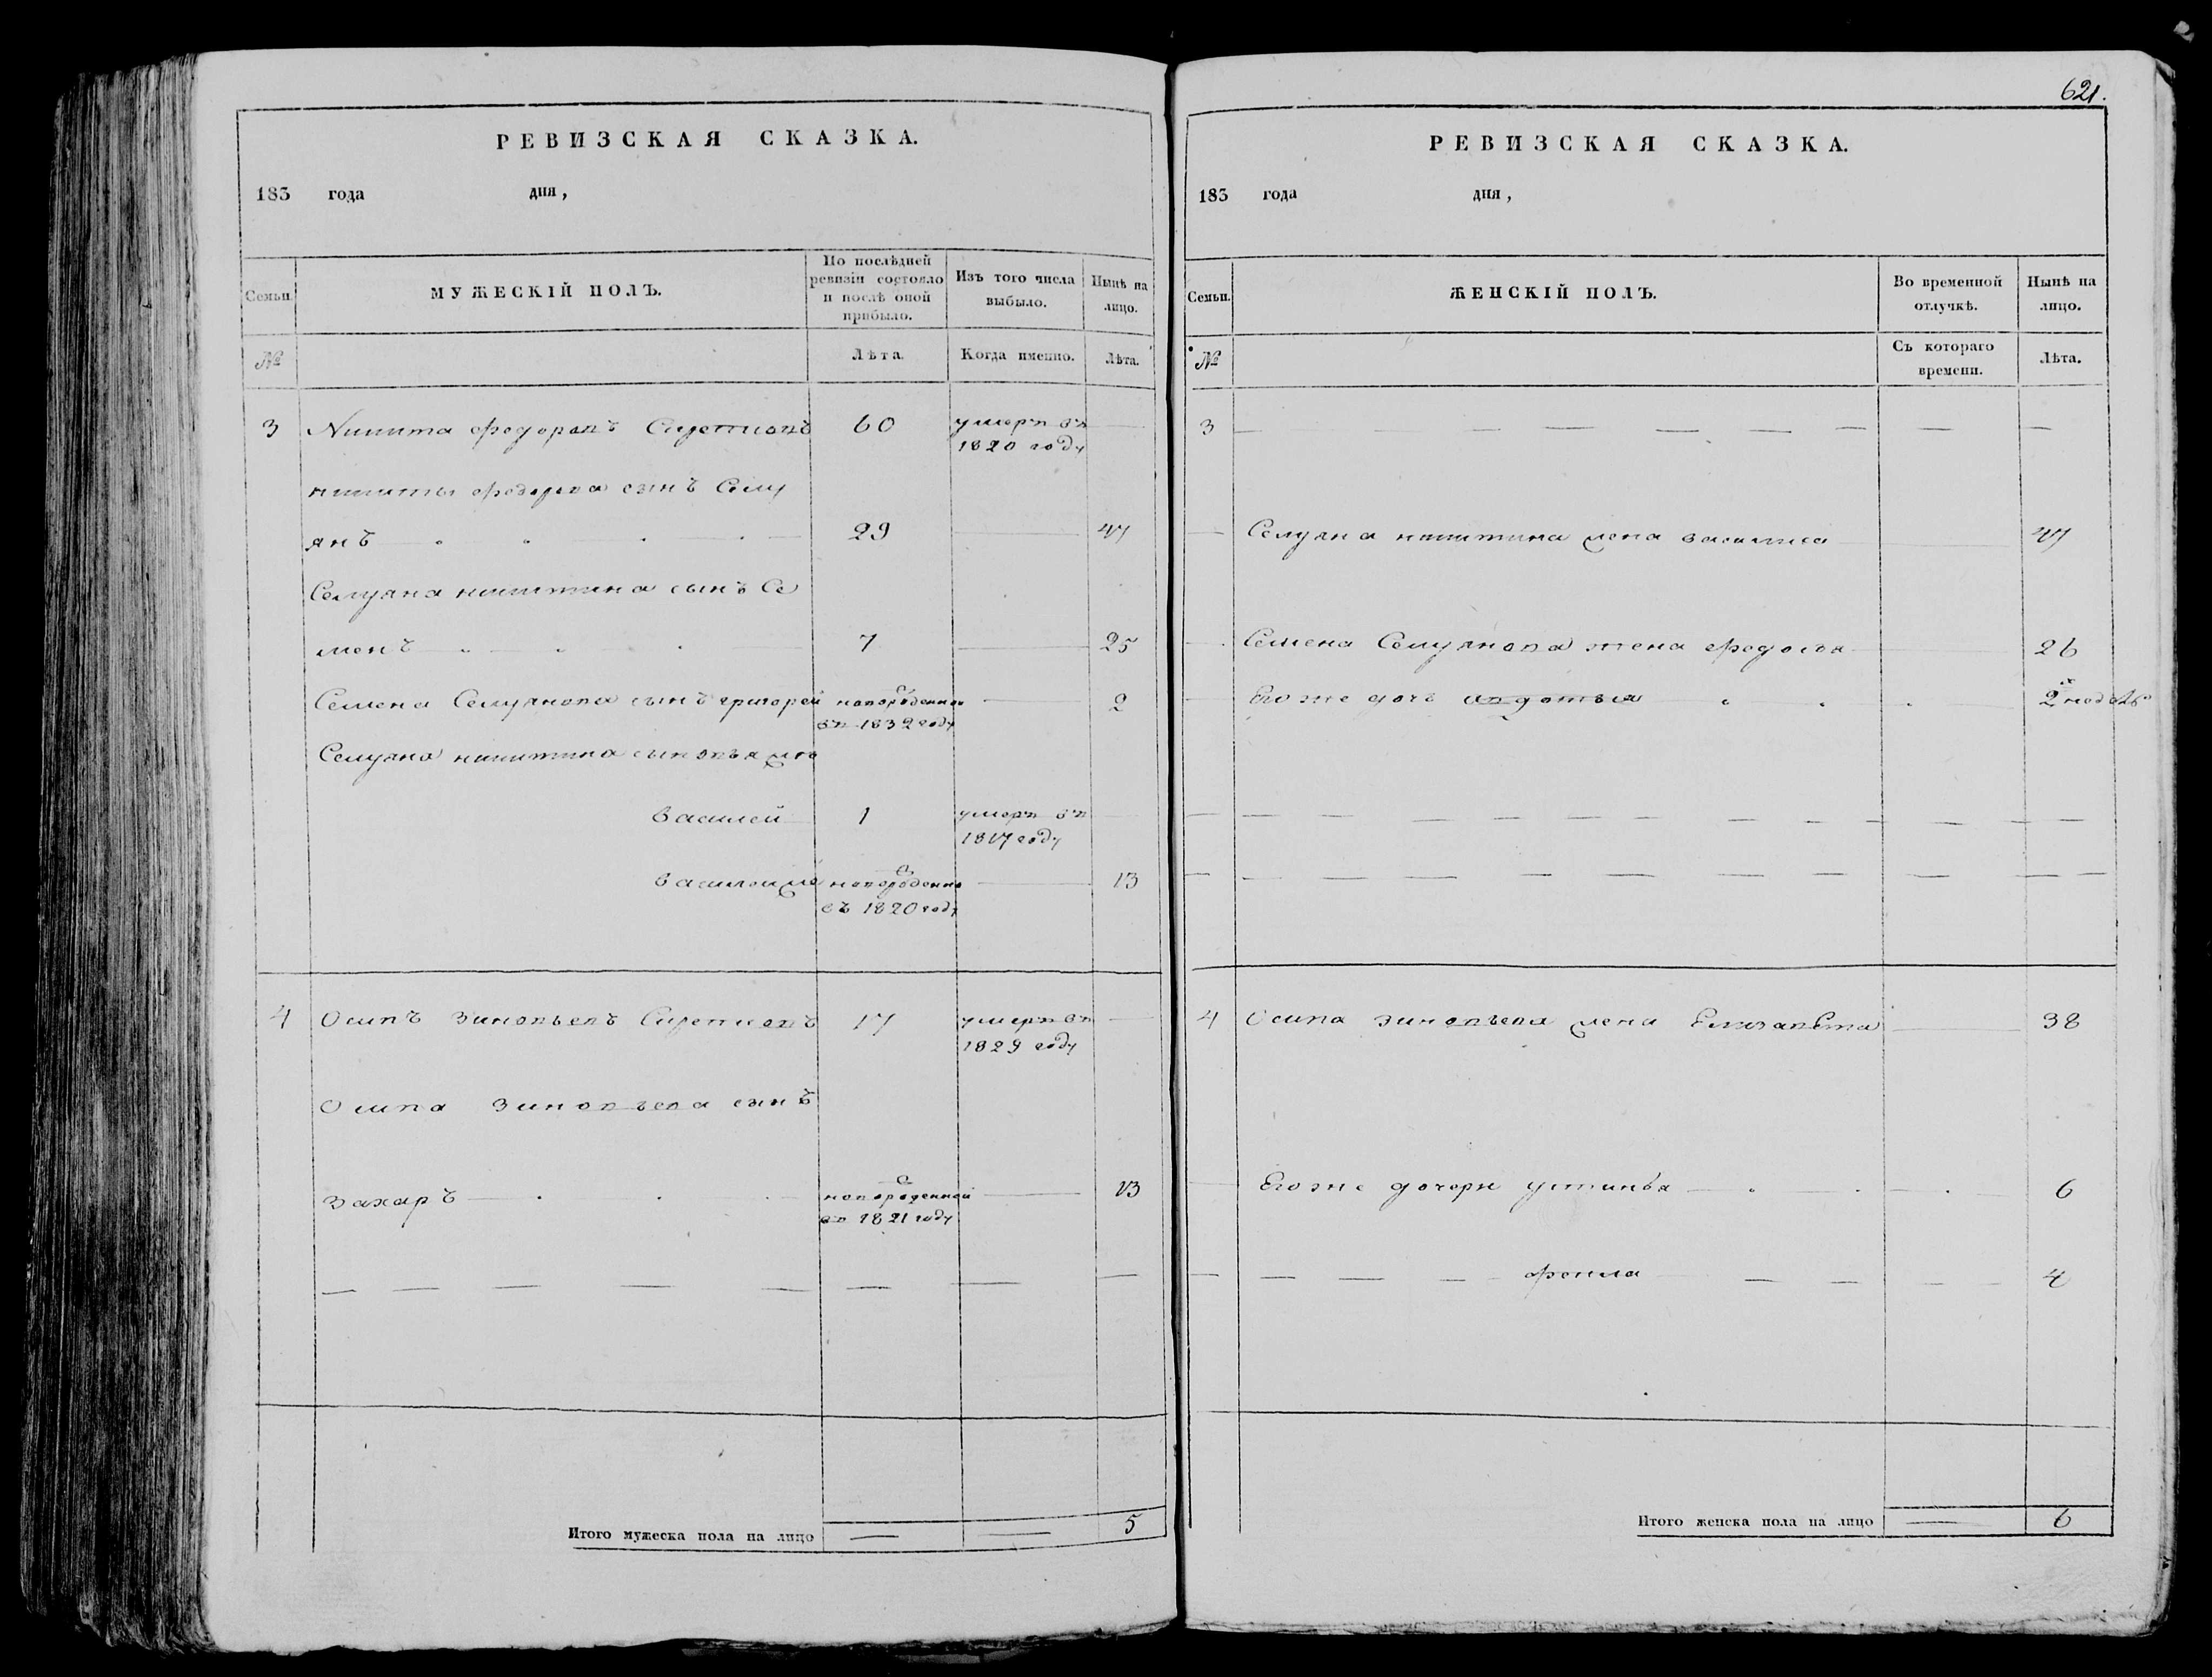 621.
РЕВИЗСКАЯ СКАЗКА.
183 года дня,
Семьи. МУЖЕСКІЙ ПОЛЪ. По послѣдней ревизіи состояло и послѣ оной прибыло. Изъ того числа выбыло. Нынѣ на лицо.
№ Лѣта. Когда именно. Лѣта.
3 Никита федоровъ 60 умеръ въ
1820 году
никиты федорова сынъ Селу
янъ 29 47
Селуяна никитина сынъ Се
менъ 7 25
Семена Селуянова сынъ григорей новорожденной 2
въ 1832 году
Селуяна никитина сыновья
василей 1 умеръ въ
1817 году
василей новорожденной 13
въ 1820 году
4 Осипъ Зиновьевъ 17 умеръ въ
1829 году
Осипа Зиновьева сынъ
Захаръ новорожденной 13
въ 1821 году
Итого мужеска пола на лицо 5
РЕВИЗСКАЯ СКАЗКА.
183 года дня,
Семьи. ЖЕНСКІЙ ПОЛЪ. Во временной отлучкѣ. Нынѣ на лицо.
№ Съ котораго времени. Лѣта.
3
Селуяна никитина жена василиса 47
Семена Селуянова жена федосья 26
Его же дочь авдотья 2
4 Осипа Зиновьева жена Елизавета 38
Его же дочери устинья 6
фекла 4
Итого женска пола на лицо 6